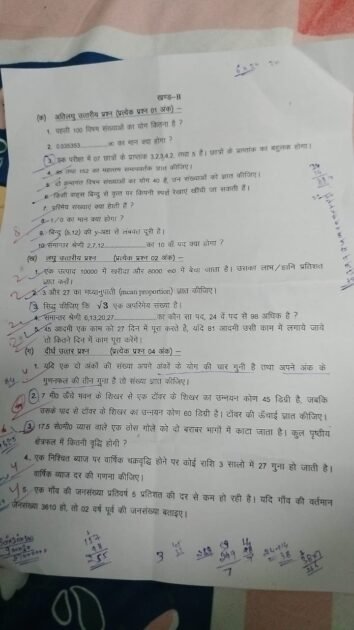 खण्ड-II
(क) अतिलघु उत्तरीय प्रश्न (प्रत्येक प्रश्न 01 अंक) –
1. पहली 100 विषम संख्याओं का योग कितना है ?
2. 0.535353 का मान क्या होगा ?
3. एक परीक्षा में 07 छात्रों के प्राप्तांक 3,2,3,4,2 तथा 5 है। छात्रों के प्राप्तांक का बहुलक होगा।
4. तथा 152 का महत्तम समापवर्तक ज्ञात कीजिए।
5. दो क्रमागत विषम संख्याओं का योग 40 है, उन संख्याओं को ज्ञात कीजिए।
6. किसी वाह्य बिन्दु से वृत्त पर कितनी स्पर्श रेखाएं खींची जा सकती हैं।
7. परिमेय संख्याएं क्या होती हैं ?
8. -1/0 का मान क्या होगा ?
9. बिन्दु (5,12) की y-अक्ष से लम्बवत दूरी है।
10. समान्तर श्रेणी 2,7,12 का 10 वाँ पद क्या होगा ?
(ख) लघु उत्तरीय प्रश्न (प्रत्येक प्रश्न 02 अंक) –
1. एक उत्पाद 10000 में खरीदा और 8000 रू0 में बेचा जाता है। उसका लाभ/हानि प्रतिशत
ज्ञात करें।
2. 3 और 27 का मध्यानुपाती (mean proportion) ज्ञात कीजिए।
3. सिद्ध कीजिए कि √3 एक अपरिमेय संख्या है।
4. समान्तर श्रेणी 6,13,20,27 का कौन सा पद, 24 वें पद से 98 अधिक है ?
5. 45 आदमी एक काम को 27 दिन में पूरा करते है, यदि 81 आदमी उसी काम में लगाये जाये
तो कितने दिन में काम पूरा करेंगे।
(ग) दीर्घ उत्तर प्रश्न (प्रत्येक प्रश्न 04 अंक) –
1. यदि एक दो अंकों की संख्या अपने अंकों के योग की चार गुनी है तथा अपने अंक के
गुणनफल की तीन गुना है तो संख्या ज्ञात कीजिए।
2. 7 मी0 ऊँचे भवन के शिखर से एक टॉवर के शिखर का उन्नयन कोण 45 डिग्री है, जबकि
उसके पाद से टॉवर के शिखर का उन्नयन कोण 60 डिग्री है। टॉवर की ऊँचाई ज्ञात कीजिए।
3. 17.5 से0मी0 व्यास वाले एक ठोस गोले को दो बराबर भागों में काटा जाता है। कुल पृष्ठीय
क्षेत्रफल में कितनी वृद्धि होगी ?
4. एक निश्चित ब्याज पर वार्षिक चक्रवृद्धि होने पर कोई राशि 3 सालो में 27 गुना हो जाती है।
वार्षिक ब्याज दर की गणना कीजिए।
5. एक गाँव की जनसंख्या प्रतिवर्ष 5 प्रतिशत की दर से कम हो रही है। यदि गाँव की वर्तमान
जनसंख्या 3610 हो, तो 02 वर्ष पूर्व की जनसंख्या बताइए।